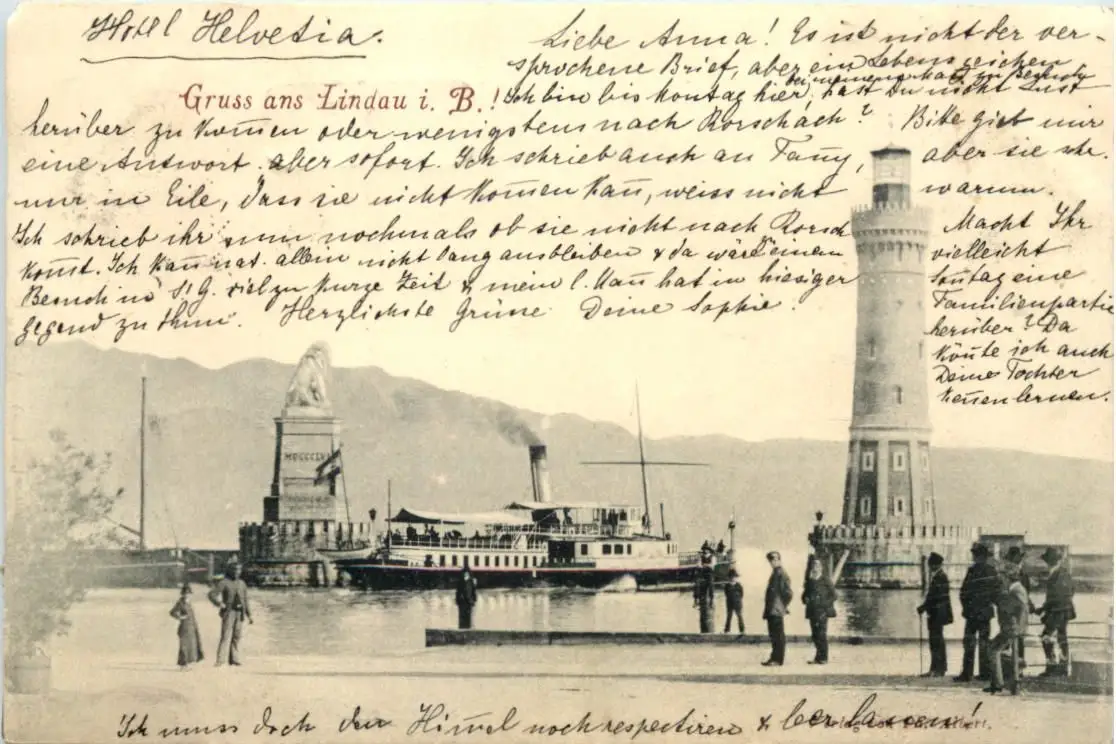 Hotel Helvetia.
Liebe Anna! Es ist nicht der ver-
sprochene Brief, aber ein Lebenszeichen
bei meinem
Gruss aus Lindau i. B.! Ich bin bis Montag hier, hast Du nicht Lust
herüber zu kom̄en oder wenigstens nach Rorschach? Bitte gieb mir
eine Antwort aber sofort. Ich schrieb auch an Fanny, aber sie schr.
mir in Eile, dass sie nicht kom̄en kan̄, weiss nicht warum.
Ich schrieb ihr nun nochmals ob sie nicht nach Rorsch
kom̄t. Ich kan̄ nat. allein nicht lang ausbleiben & da wäre einem
Besuch in St. G. viel zu kurze Zeit & mein l. Man̄ hat in hiesiger
Gegend zu thun. Herzlichste Grüsse Deine Sophie.
Macht Ihr
vielleicht
Son̄tag eine
Familienpartie
herüber? Da
kön̄te ich auch
Deine Tochter
ken̄en lernen.
MDCCCLVI
Ich muss doch den Him̄el noch respectiren & leer lassen!